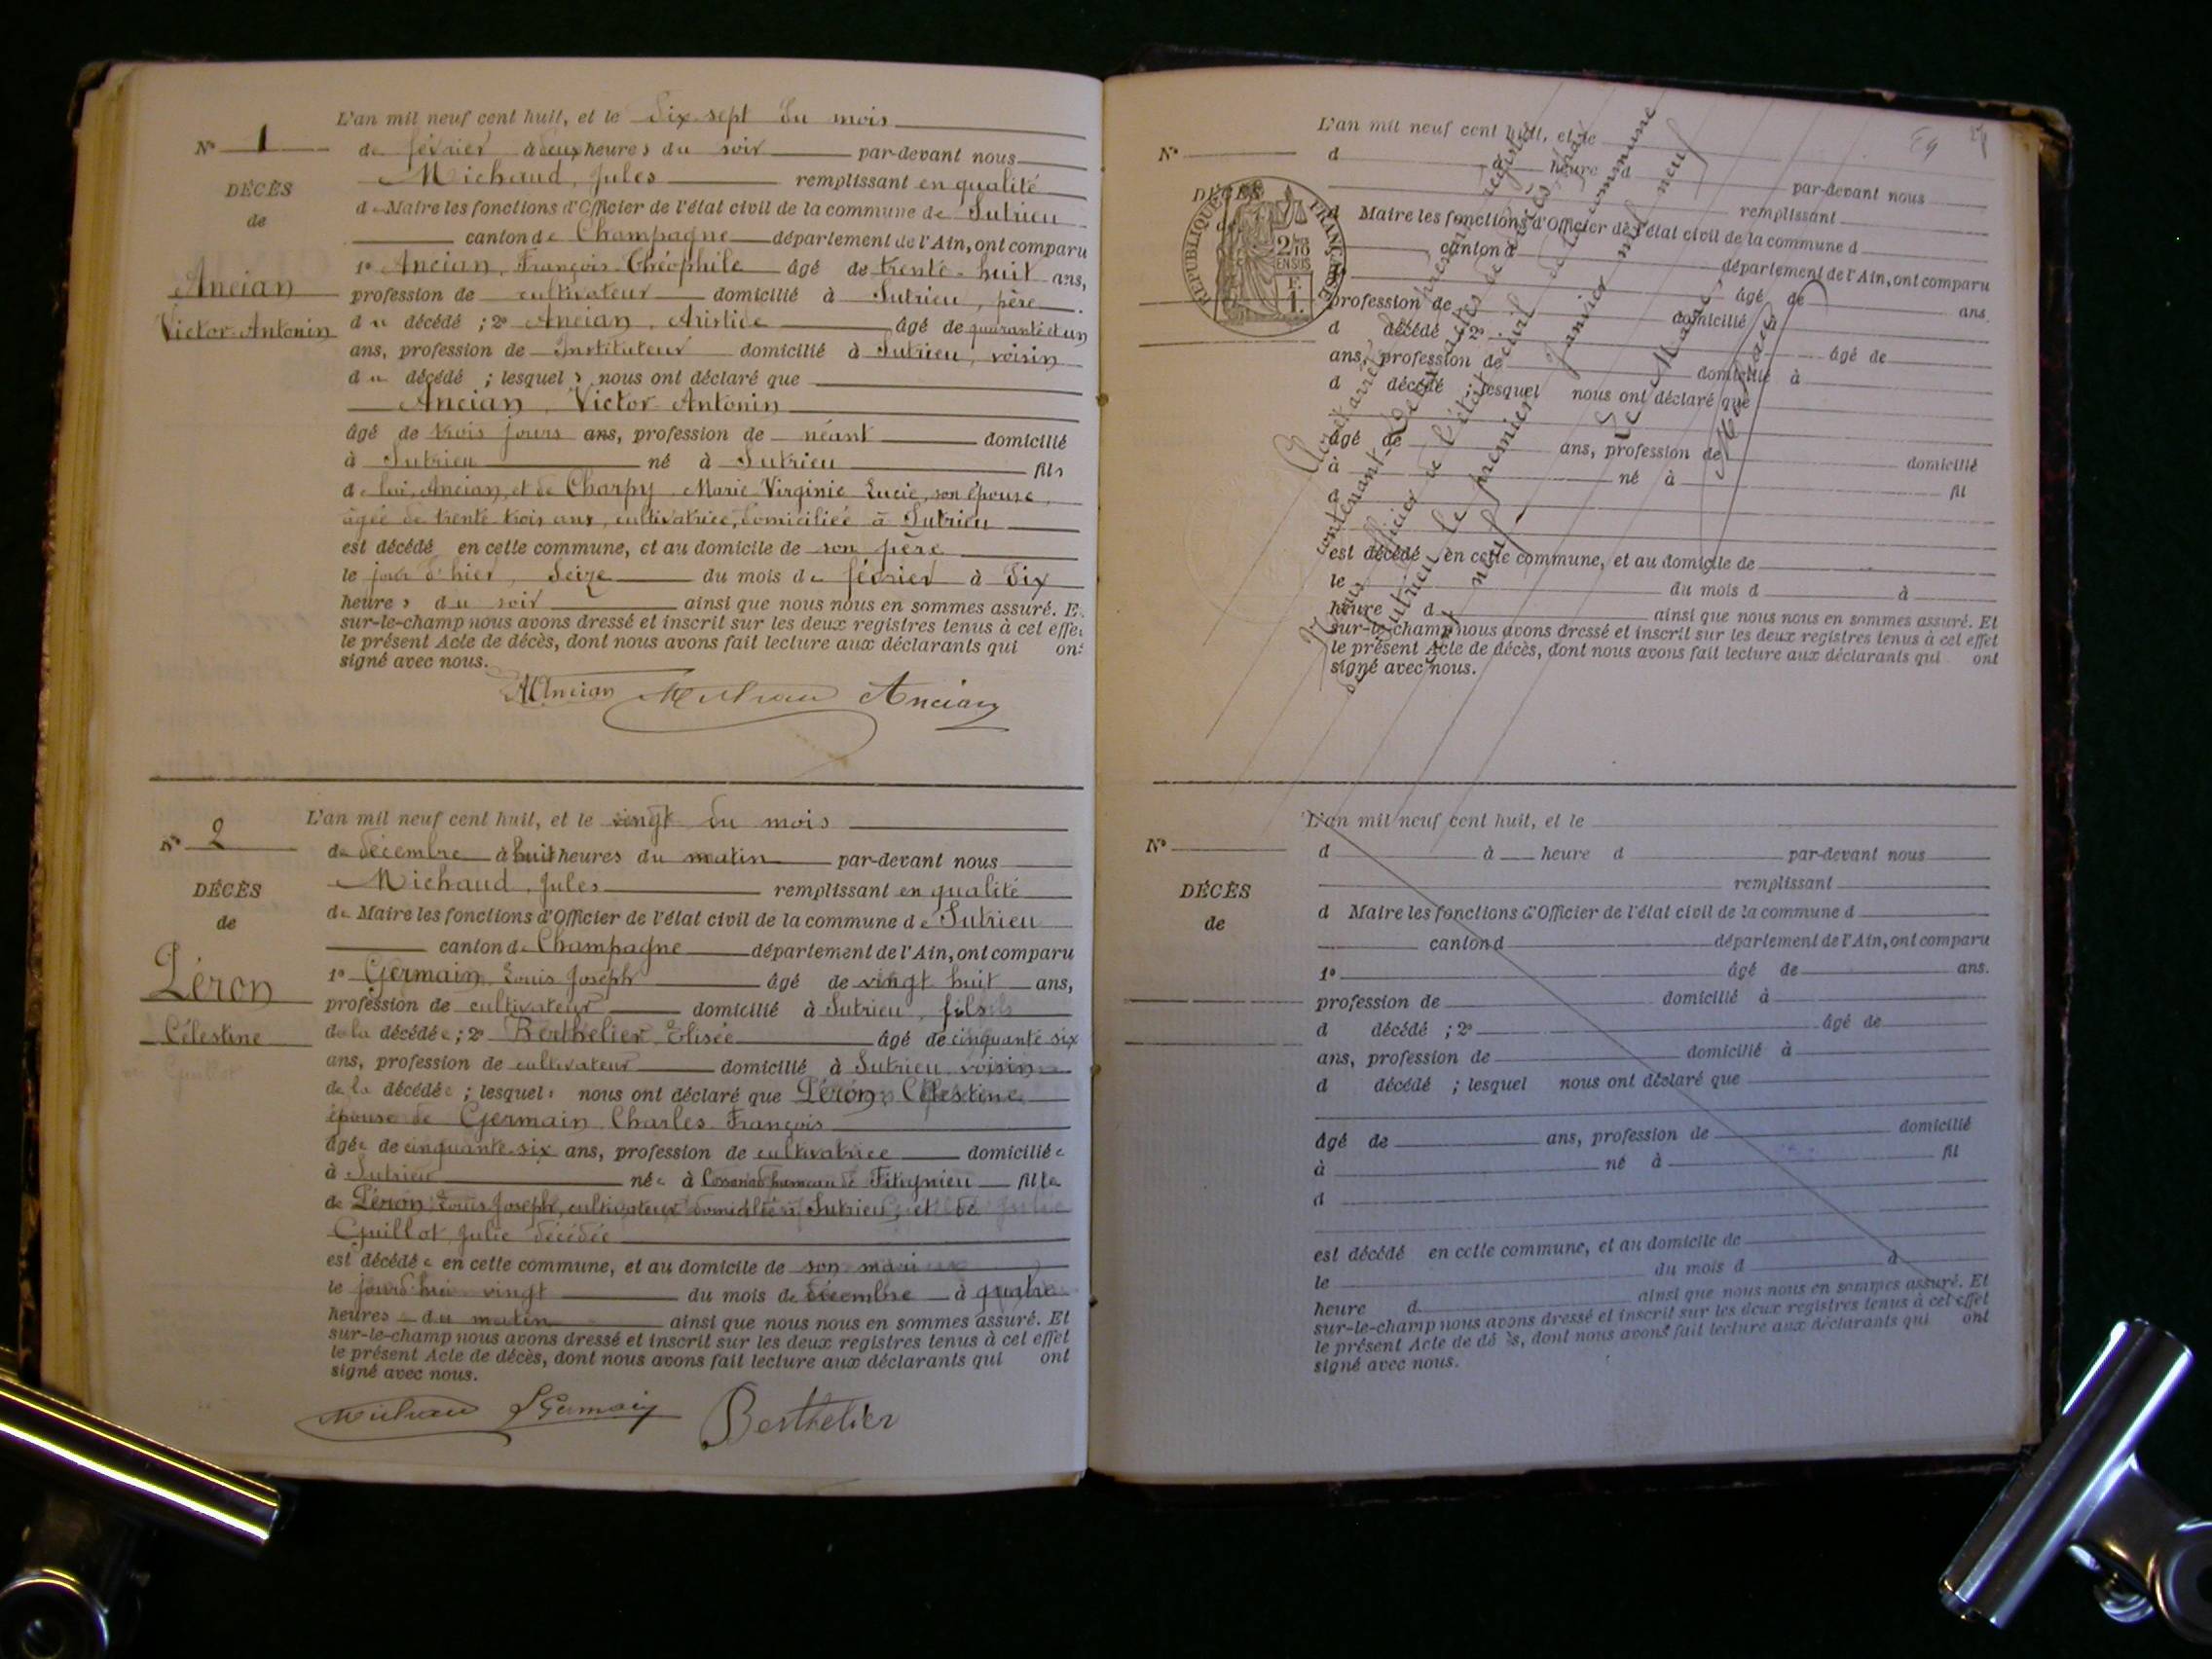 L'an mil neuf cent huit, et le dix-sept du mois
N° 1 de février à deux heures du soir par-devant nous
Michaud, Jules remplissant en qualité
DÉCÈS
de Maire les fonctions d'Officier de l'état civil de la commune de Sutrieu
de
canton de Champagne département de l'Ain, ont comparu
1° Ancian, François Théophile âgé de trente-huit ans,
Ancian
profession de cultivateur domicilié à Sutrieu, père
Victor-Antonin
du décédé ; 2° Ancian, Aristide âgé de quarante et un
ans, profession de Instituteur domicilié à Sutrieu, voisin
du décédé ; lesquels nous ont déclaré que
Ancian, Victor-Antonin
âgé de trois jours ans, profession de néant domicilié
à Sutrieu né à Sutrieu fils
de lui, Ancian, et de Charpy Marie Virginie Lucie, son épouse,
âgée de trente trois ans, cultivatrice, domiciliée à Sutrieu
est décédé en cette commune, et au domicile de son père
le jour d'hier, Seize du mois de février à dix
heures du soir ainsi que nous nous en sommes assuré. E
sur-le-champ nous avons dressé et inscrit sur les deux registres tenus à cet effe
le présent Acte de décès, dont nous avons fait lecture aux déclarants qui on
signé avec nous.
AAncian Michaud Ancian
L'an mil neuf cent huit, et le vingt du mois
N° 2
de décembre à huit heures du matin par-devant nous
Michaud, Jules remplissant en qualité
DÉCÈS
de Maire les fonctions d'Officier de l'état civil de la commune de Sutrieu
de
canton de Champagne département de l'Ain, ont comparu
1° Germain, Louis Joseph âgé de vingt huit ans,
Péron
profession de cultivateur domicilié à Sutrieu, fils
Célestine
de la décédée ; 2° Berthelier Elisée âgé de cinquante six
ans, profession de cultivateur domicilié à Sutrieu, voisin
de la décédée ; lesquels nous ont déclaré que Péron, Célestine
épouse de Germain Charles François
âgée de cinquante-six ans, profession de cultivatrice domiciliée
à Sutrieu née à hameau de Fitignieu fille
de Péron Louis Joseph, cultivateur domicilié à Sutrieu, et de
Guillot, Julie décédée
est décédée en cette commune, et au domicile de son mari
le jourd'hui vingt du mois de décembre à quatre
heures du matin ainsi que nous nous en sommes assuré. Et
sur-le-champ nous avons dressé et inscrit sur les deux registres tenus à cet effet
le présent Acte de décès, dont nous avons fait lecture aux déclarants qui ont
signé avec nous.
Michaud LGermain Berthelier
L'an mil neuf cent huit, et le
N°
d à heure d par-devant nous
DÉCÈS
remplissant
RÉPUBLIQUE FRANÇAISE
d Maire les fonctions d'Officier de l'état civil de la commune d
canton d département de l'Ain, ont comparu
âgé de ans.
profession de domicilié à
d décédé 2° âgé de
ans, profession de domicilié à
d décédé ; lesquel nous ont déclaré que
âgé de ans, profession de domicilié
à né à fil
d
est décédé en cette commune, et au domicile de
le du mois d à
heure d ainsi que nous nous en sommes assuré. Et
sur-le-champ nous avons dressé et inscrit sur les deux registres tenus à cet effet
le présent Acte de décès, dont nous avons fait lecture aux déclarants qui ont
signé avec nous.
contenant deux actes de décès
officier de l'état civil de la commune
Sutrieu le premier janvier mil neuf
neuf
Le Maire,
L'an mil neuf cent huit, et le
N°
d à heure d par-devant nous
remplissant
DÉCÈS
d Maire les fonctions d'Officier de l'état civil de la commune d
de
canton d département de l'Ain, ont comparu
1° âgé de ans.
profession de domicilié à
d décédé ; 2° âgé de
ans, profession de domicilié à
d décédé ; lesquel nous ont déclaré que
âgé de ans, profession de domicilié
à né à fil
d
est décédé en cette commune, et au domicile de
le du mois d à
heure d ainsi que nous nous en sommes assuré. Et
sur-le-champ nous avons dressé et inscrit sur les deux registres tenus à cet effet
le présent Acte de décès, dont nous avons fait lecture aux déclarants qui ont
signé avec nous.